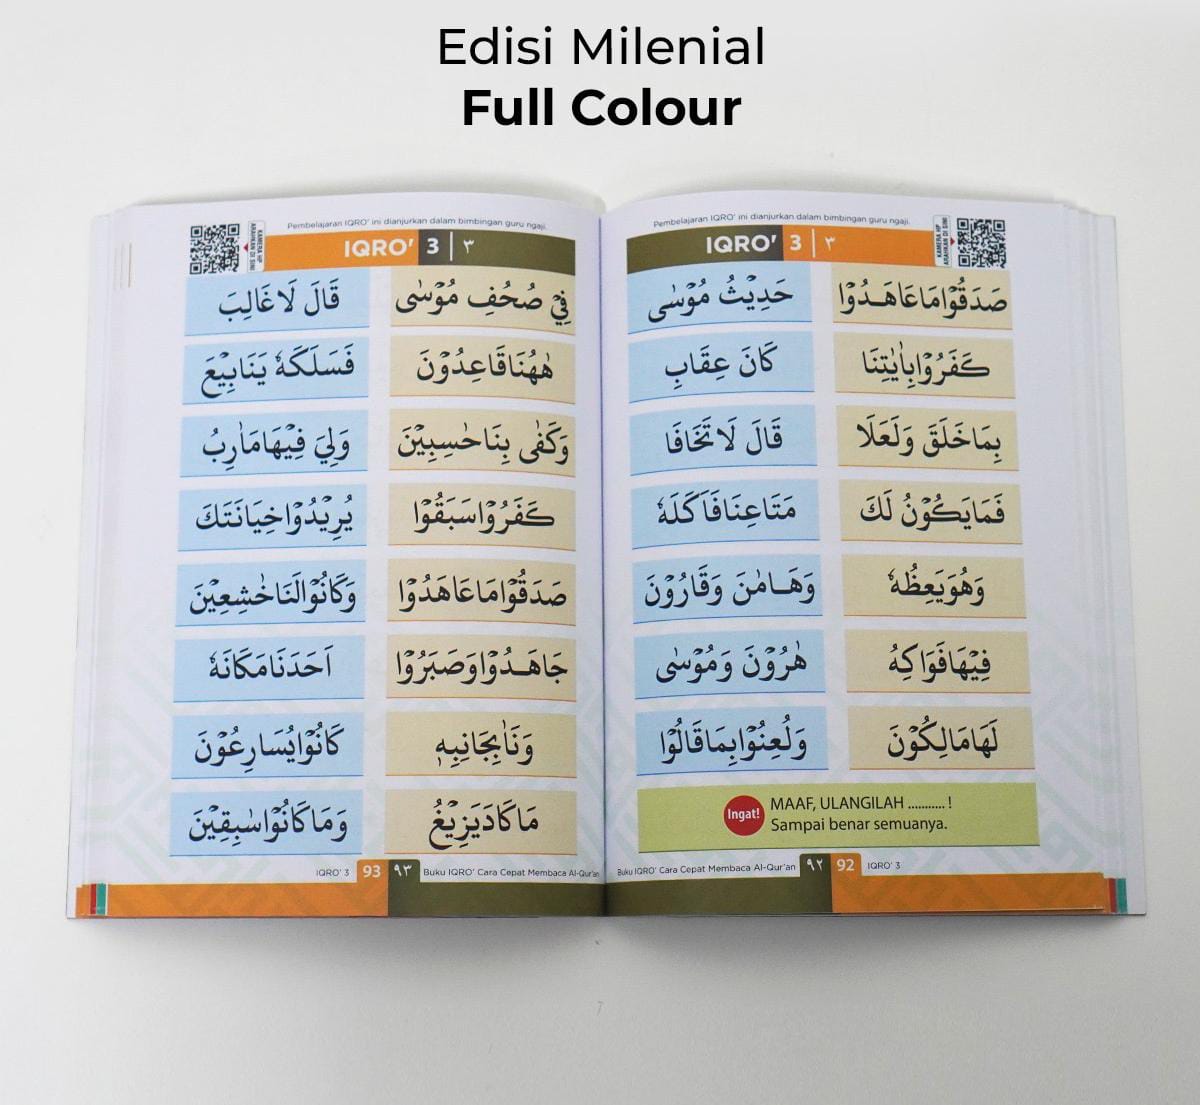 Edisi Milenial
Full Colour
Pembelajaran IQRO' ini dianjurkan dalam bimbingan guru ngaji.
ARAHKAN DI SINI
KAMERA HP
IQRO' 3 | ٣
صَدَقُوْامَاعَاهَدُوْا
حَدِيْثُ مُوْسٰى
كَفَرُوْابِاٰيٰتِنَا
كَانَ عِقَابِ
بِمَاخَلَقَ وَلَعَلَا
قَالَ لَاتَخَافَا
فَمَايَكُوْنُ لَكَ
مَتَاعِنَافَاَكَلَهٗ
وَهُوَيَعِظُهٗ
وَهَامٰنَ وَقَارُوْنَ
فِيْهَافَوَاكِهُ
هٰرُوْنَ وَمُوْسٰى
لَهَامَالِكُوْنَ
وَلُعِنُوْابِمَاقَالُوْا
Ingat!
MAAF, ULANGILAH ........... !
Sampai benar semuanya.
Buku IQRO' Cara Cepat Membaca Al-Qur'an ٩٢ 92 IQRO' 3
Pembelajaran IQRO' ini dianjurkan dalam bimbingan guru ngaji.
ARAHKAN DI SINI
KAMERA HP
IQRO' 3 | ٣
فِيْ صُحُفِ مُوْسٰى
قَالَ لَاغَالِبَ
هٰهُنَاقَاعِدُوْنَ
فَسَلَكَهٗ يَنَابِيْعَ
وَكَفٰى بِنَاحٰسِبِيْنَ
وَلِيَ فِيْهَامَاٰرِبُ
كَفَرُوْاسَبَقُوْا
يُرِيْدُوْاخِيَانَتَكَ
صَدَقُوْامَاعَاهَدُوْا
وَكَانُوْالَنَاخٰشِعِيْنَ
جَاهَدُوْاوَصَبَرُوْا
اَحَدَنَامَكَانَهٗ
وَنَاٰبِجَانِبِهٖ
كَانُوْايُسَارِعُوْنَ
مَاكَادَيَزِيْغُ
وَمَاكَانُوْاسٰبِقِيْنَ
IQRO' 3 93 ٩٣ Buku IQRO' Cara Cepat Membaca Al-Qur'an